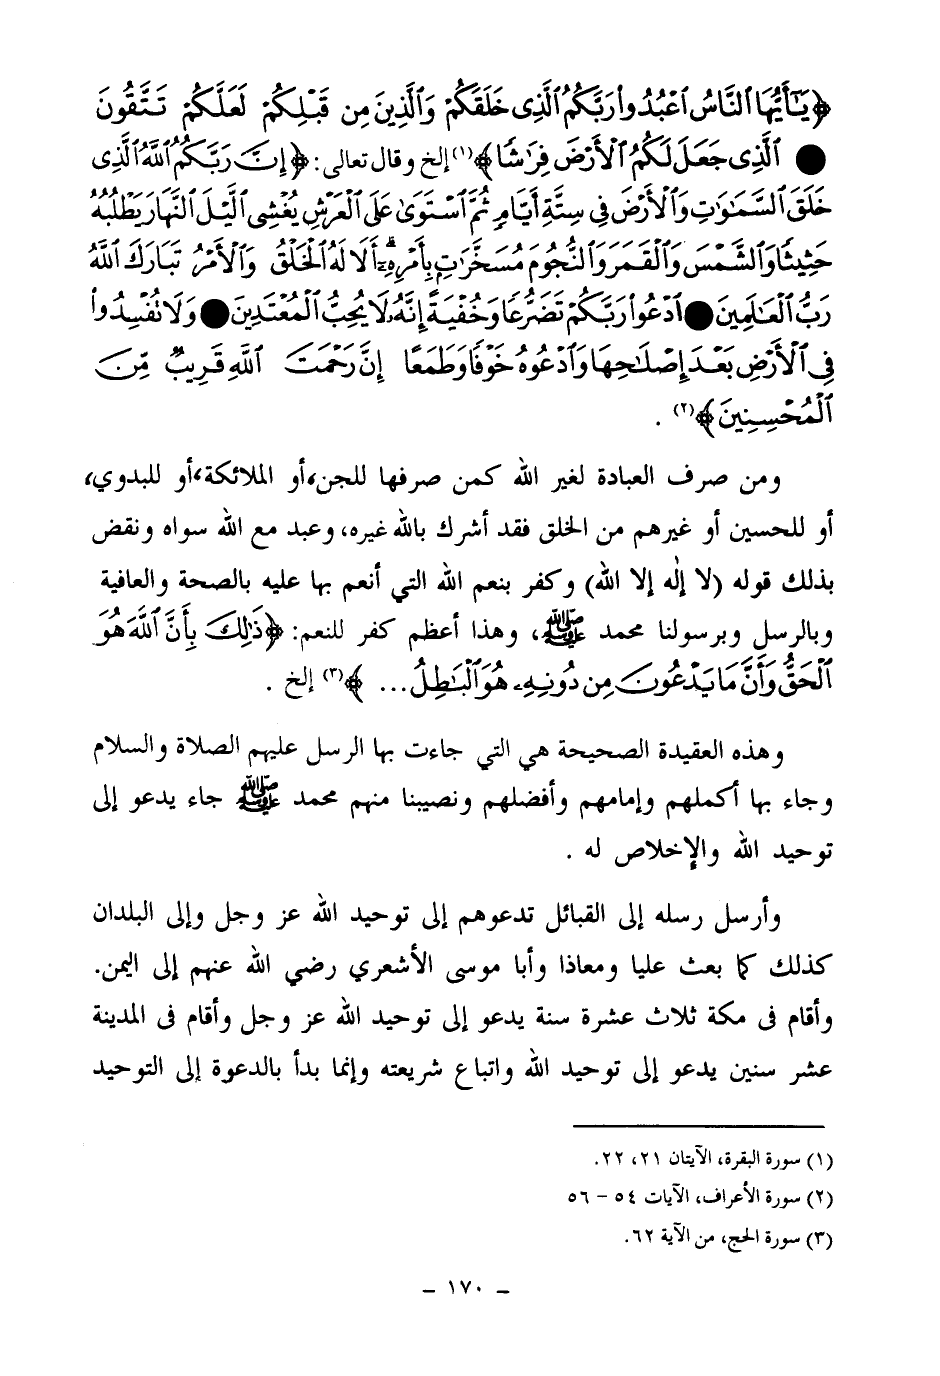 ﴿يَـٰٓأَيُّهَا ٱلنَّاسُ ٱعۡبُدُواْ رَبَّكُمُ ٱلَّذِى خَلَقَكُمۡ وَٱلَّذِينَ مِن قَبۡلِكُمۡ لَعَلَّكُمۡ تَتَّقُونَ
● ٱلَّذِى جَعَلَ لَكُمُ ٱلۡأَرۡضَ فِرَٰشًا﴾(١) إلخ وقال تعالى: ﴿إِنَّ رَبَّكُمُ ٱللَّهُ ٱلَّذِى
خَلَقَ ٱلسَّمَٰوَٰتِ وَٱلۡأَرۡضَ فِى سِتَّةِ أَيَّامٍ ثُمَّ ٱسۡتَوَىٰ عَلَى ٱلۡعَرۡشِ يُغۡشِى ٱلَّيۡلَ ٱلنَّهَارَ يَطۡلُبُهُۥ
حَثِيثًا وَٱلشَّمۡسَ وَٱلۡقَمَرَ وَٱلنُّجُومَ مُسَخَّرَٰتِۭ بِأَمۡرِهِۦٓۗ أَلَا لَهُ ٱلۡخَلۡقُ وَٱلۡأَمۡرُ تَبَارَكَ ٱللَّهُ
رَبُّ ٱلۡعَٰلَمِينَ ● ٱدۡعُواْ رَبَّكُمۡ تَضَرُّعًا وَخُفۡيَةً إِنَّهُۥ لَا يُحِبُّ ٱلۡمُعۡتَدِينَ ● وَلَا تُفۡسِدُواْ
فِى ٱلۡأَرۡضِ بَعۡدَ إِصۡلَٰحِهَا وَٱدۡعُوهُ خَوۡفًا وَطَمَعًا إِنَّ رَحۡمَتَ ٱللَّهِ قَرِيبٌ مِّنَ
ٱلۡمُحۡسِنِينَ﴾(٢) .
ومن صرف العبادة لغير الله كمن صرفها للجن، أو الملائكة، أو للبدوي،
أو للحسين أو غيرهم من الخلق فقد أشرك بالله غيره، وعبد مع الله سواه ونقض
بذلك قوله (لا إله إلا الله) وكفر بنعم الله التي أنعم بها عليه بالصحة والعافية
وبالرسل وبرسولنا محمد ﷺ، وهذا أعظم كفر للنعم: ﴿ذَٰلِكَ بِأَنَّ ٱللَّهَ هُوَ
ٱلۡحَقُّ وَأَنَّ مَا يَدۡعُونَ مِن دُونِهِۦ هُوَ ٱلۡبَٰطِلُ... ﴾(٣) إلخ .
وهذه العقيدة الصحيحة هي التي جاءت بها الرسل عليهم الصلاة والسلام
وجاء بها أكملهم وإمامهم وأفضلهم ونصيبنا منهم محمد ﷺ جاء يدعو إلى
توحيد الله والإخلاص له .
وأرسل رسله إلى القبائل تدعوهم إلى توحيد الله عز وجل وإلى البلدان
كذلك كما بعث عليا ومعاذا وأبا موسى الأشعري رضي الله عنهم إلى اليمن.
وأقام فى مكة ثلاث عشرة سنة يدعو إلى توحيد الله عز وجل وأقام فى المدينة
عشر سنين يدعو إلى توحيد الله واتباع شريعته وإنما بدأ بالدعوة إلى التوحيد
(١) سورة البقرة، الآيتان ٢١، ٢٢.
(٢) سورة الأعراف، الآيات ٥٤ – ٥٦
(٣) سورة الحج، من الآية ٦٢.
– ١٧٠ –